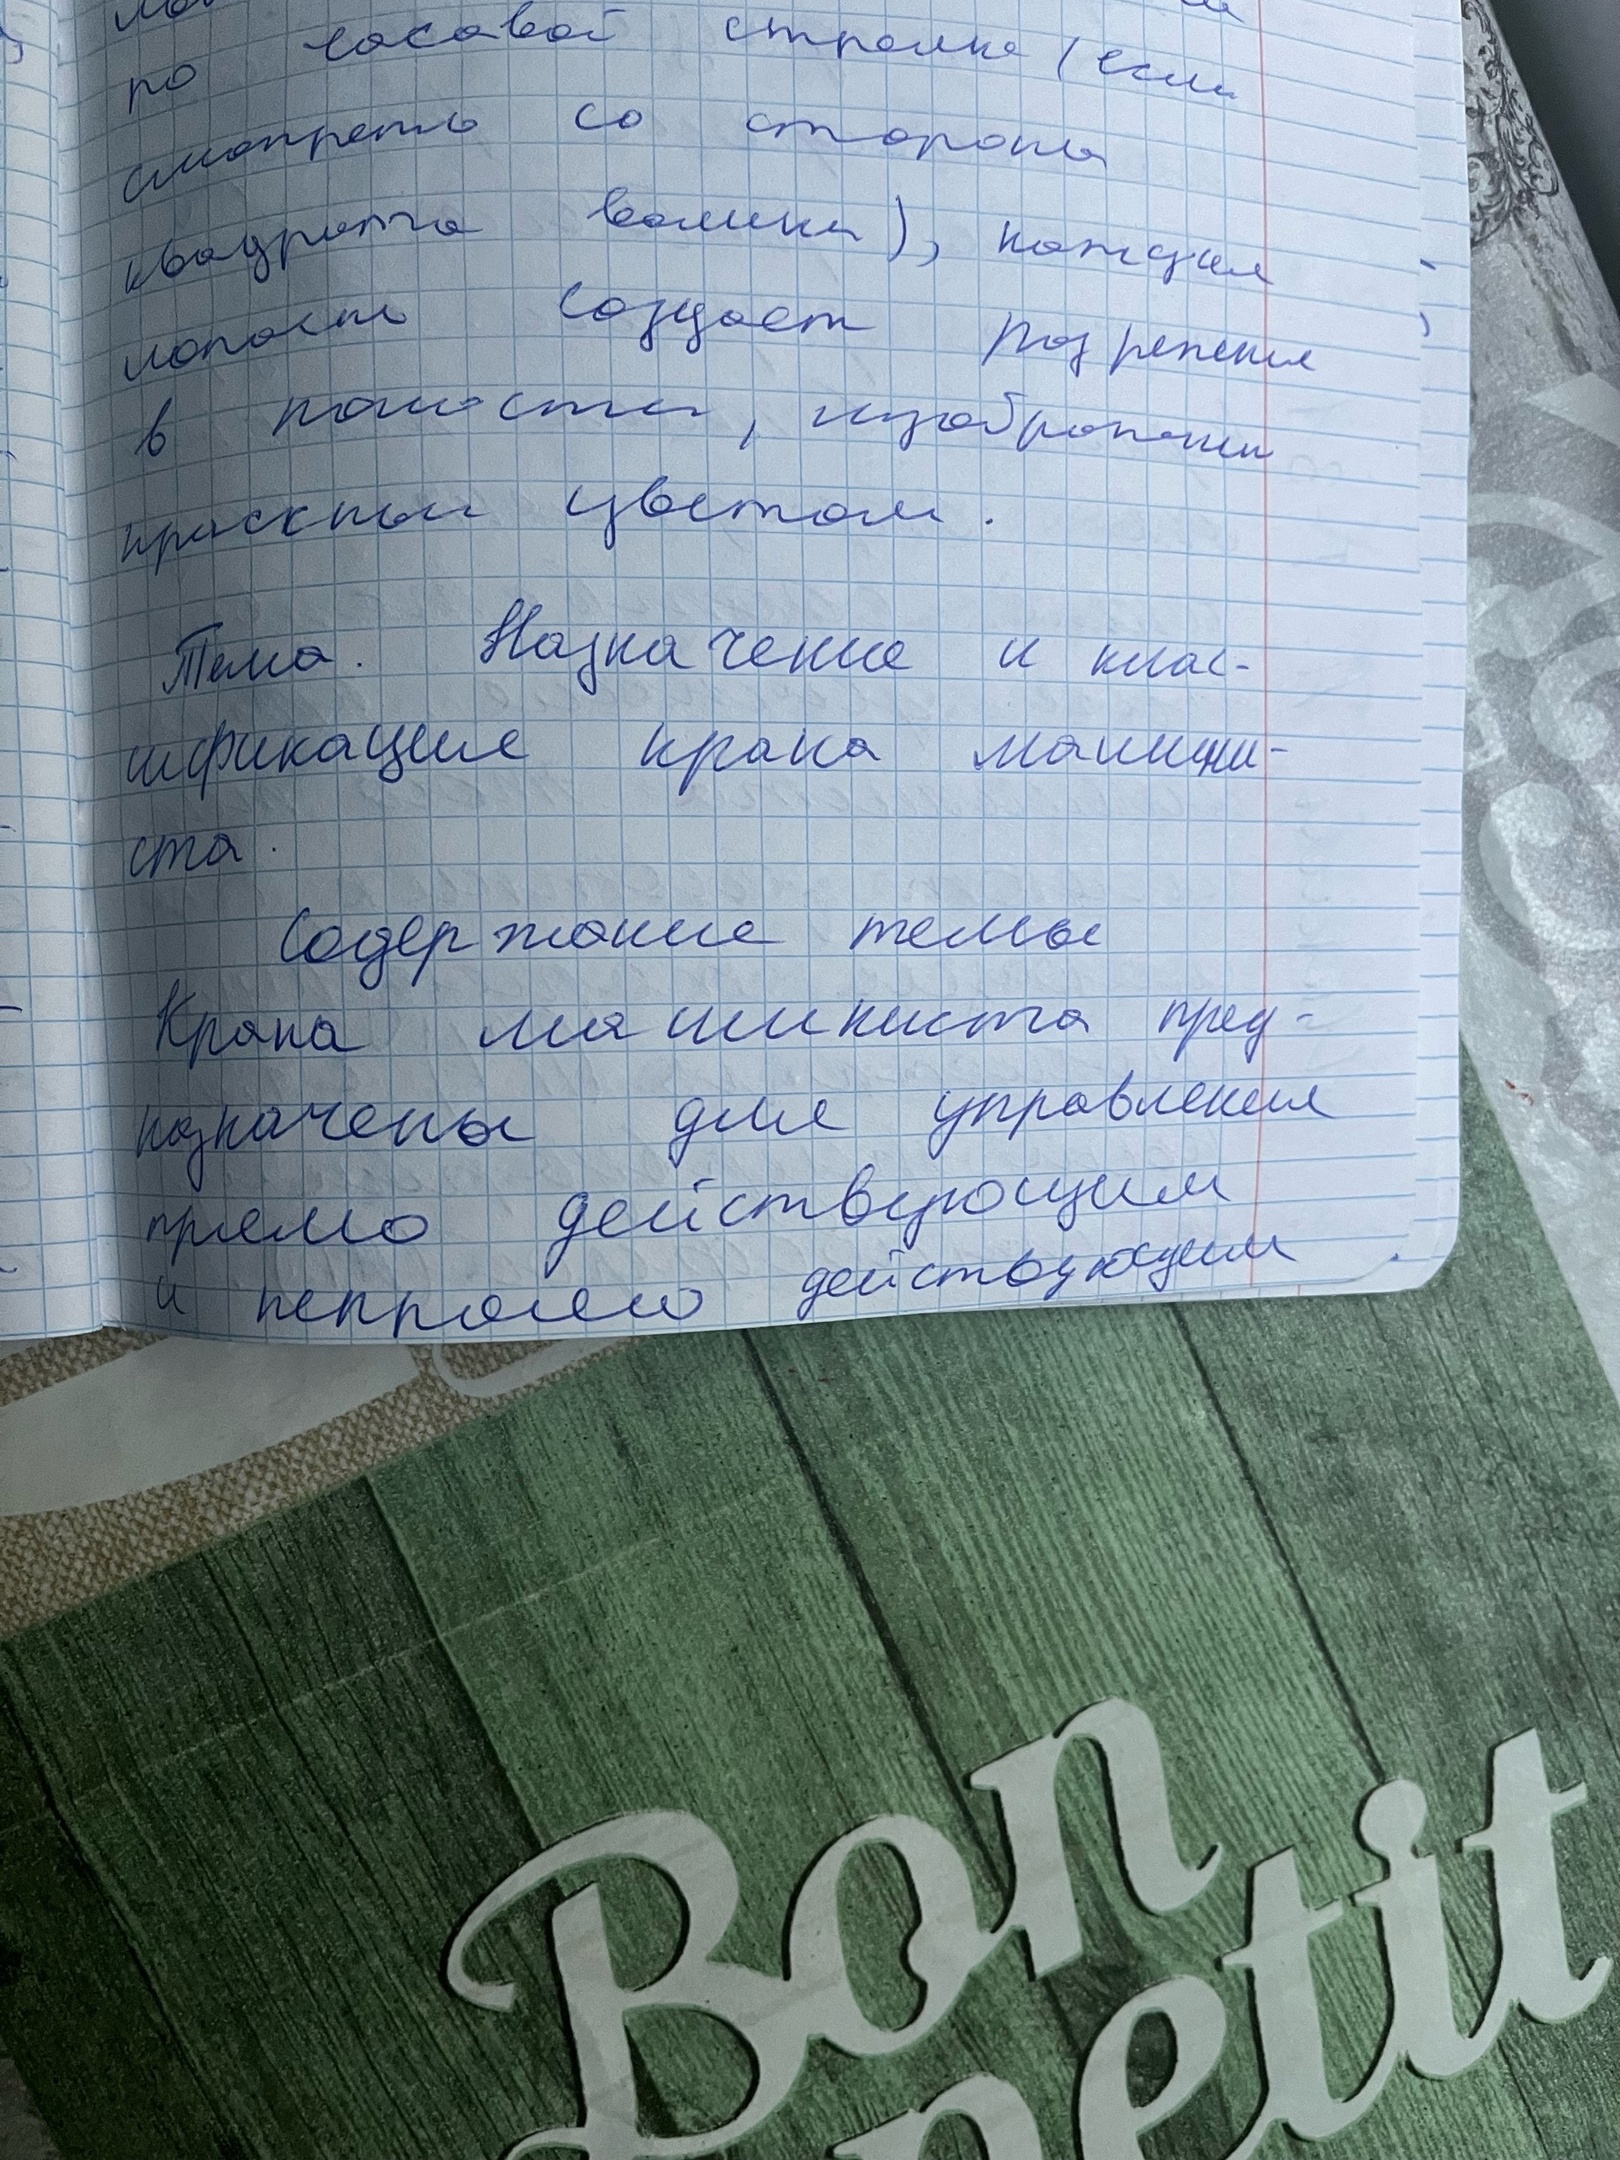 по часовой стрелке (если
смотреть со стороны
квадрата валика), каждая
лопасть создает разрежение
в полости, изображенной
красным цветом.
Тема. Назначение и клас-
сификация крана машини-
ста.
Содержание темы
Крана машиниста пред-
назначены для управления
прямо действующим
и непрямо действующим
Bon
petit